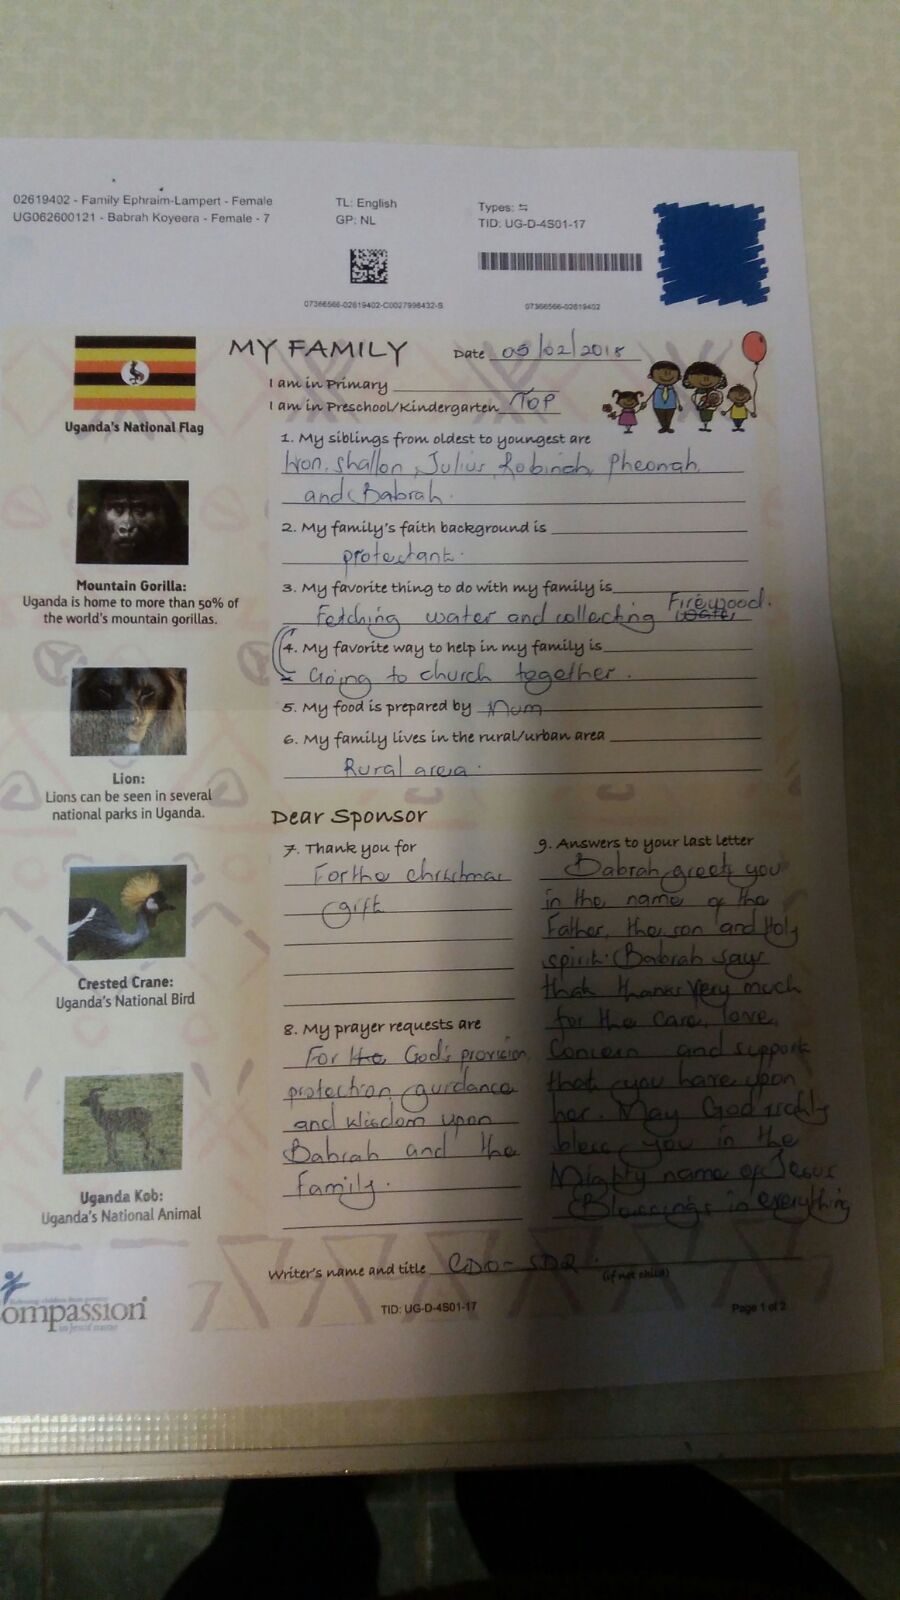 02619402 - Family Ephraim-Lampert - Female
UG062600121 - Babrah Koyeera - Female - 7
TL: English
GP: NL
Types: ⇆
TID: UG-D-4S01-17
07366566-02619402-C0027998432-S
07366566-02619402
Uganda's National Flag
Mountain Gorilla:
Uganda is home to more than 50% of
the world's mountain gorillas.
Lion:
Lions can be seen in several
national parks in Uganda.
Crested Crane:
Uganda's National Bird
Uganda Kob:
Uganda's National Animal
MY FAMILY
Date 05/02/2018
I am in Primary
I am in Preschool/Kindergarten TOP
1. My siblings from oldest to youngest are
Shallon, Julius, Robinah, Pheonah,
and Babrah.
2. My family's faith background is
protectant.
3. My favorite thing to do with my family is
Fetching water and collecting Firewood.
4. My favorite way to help in my family is
Going to church together.
5. My food is prepared by Mum
6. My family lives in the rural/urban area
Rural area.
Dear Sponsor
7. Thank you for
For the christmas
gift
8. My prayer requests are
For the God's provision,
protection, guidance
and wisdom upon
Babrah and the
family.
9. Answers to your last letter
Babrah greets you
in the name of the
Father, the son and Holy
spirit. Babrah says
that thanks very much
for the care, love,
Concern and support
that you have upon
her. May God richly
bless you in the
Mighty name of Jesus
Blessings in everything
Writer's name and title CDO - SDR.
(if not child)
ompassion
TID: UG-D-4S01-17
Page 1 of 2